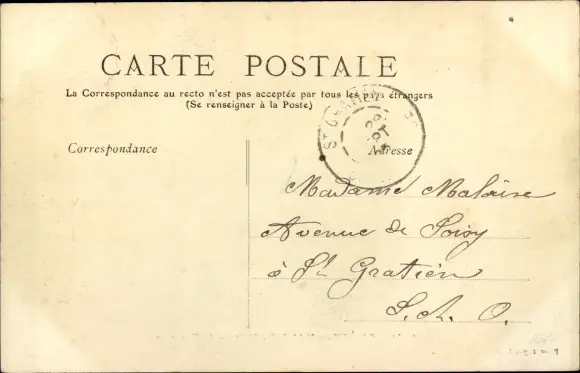 CARTE POSTALE
La Correspondance au recto n'est pas acceptée par tous les pays étrangers
(Se renseigner à la Poste)
Correspondance
Adresse
St GRATIEN
Madame Malaise
Avenue de Soisy
à St Gratien
S. & O.